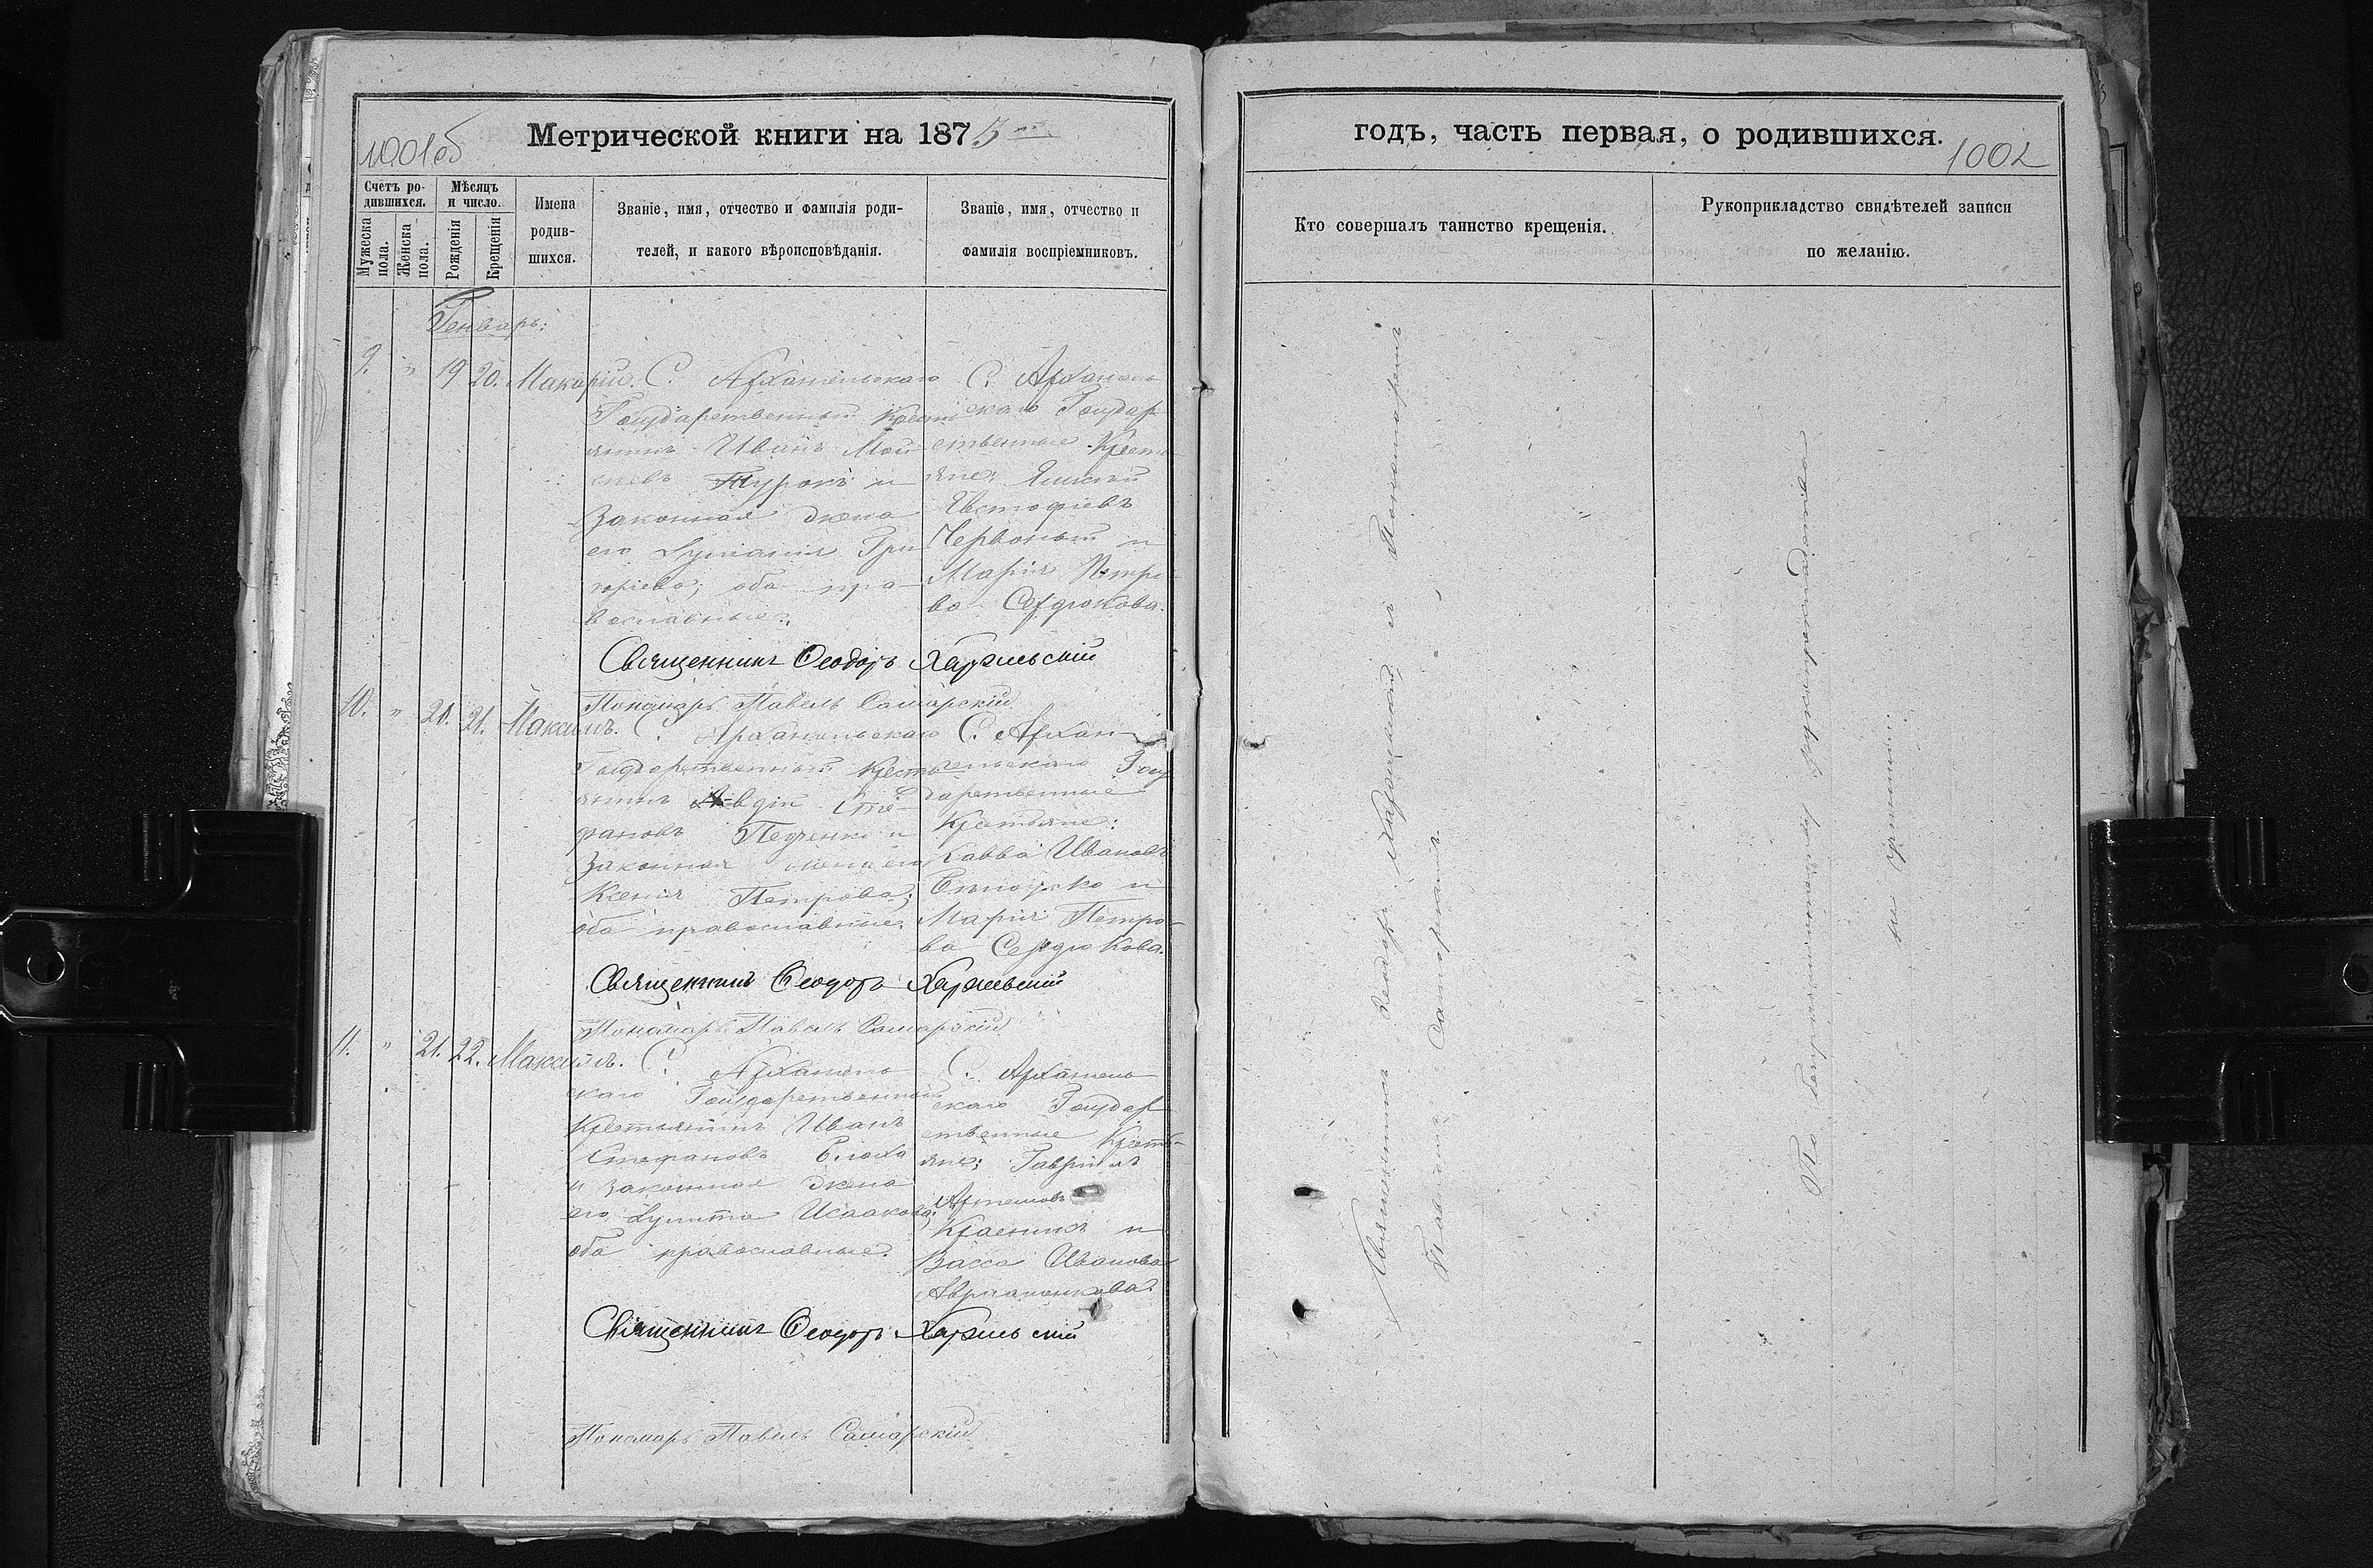 1001об
Метрической книги на 1875
Счетъ ро-
дившихся.
Мужеска
пола.
Женска
пола.
Мѣсяцъ
и число.
Рожденія
Крещенія
Имена
родив-
шихся.
Званіе, имя, отчество и фамилія роди-
телей, и какого вѣроисповѣданія.
Званіе, имя, отчество и
фамилія воспріемниковъ.
Генварь:
9. " 19 20. Макарій.
С. Архангельскаго
Государственный Крест
янинъ Иванъ Мои
сеевъ Турокъ и
Законная жена
его Гри
горіева; оба пра-
вославные.
С. Архангель
скаго Государ
ственные Крестъ
яне:
Евстафіевъ
Червоный и
Марія Петро-
ва Сердюкова.
Священникъ Ѳеодоръ
Пономарь Павелъ Самарскій
10. " 21. 21. Максимъ.
С. Архангельскаго
Государственный Кресть
янинъ Авдій Сте
фановъ и
Законная жена его
Ксенія Петрова;
оба православные.
С. Архан-
гельскаго Госу
дарственные
Крестьяне:
Савва Ивановъ
и
Марія Петро-
ва Сердюкова.
Священникъ Ѳеодоръ
Пономарь Павелъ Самарскій
11. " 21. 22. Максимъ.
С. Архангель
скаго Государственный
Крестьянинъ Иванъ
Стефановъ Блоха
и законная жена
его Исаакова;
оба православные.
С. Архангель
скаго Государ
ственные Кресть-
яне: Гавріилъ
Артемовъ
и
Васса Иванова
Священникъ Ѳеодоръ
Пономарь Павелъ Самарскій
годъ, часть первая, о родившихся.
1002
Кто совершалъ таинство крещенія.
Рукоприкладство свидѣтелей записи
по желанію.
Священникъ Ѳеодоръ съ Пономаремъ
Павломъ Самарскимъ.
По рукоприкладства
не